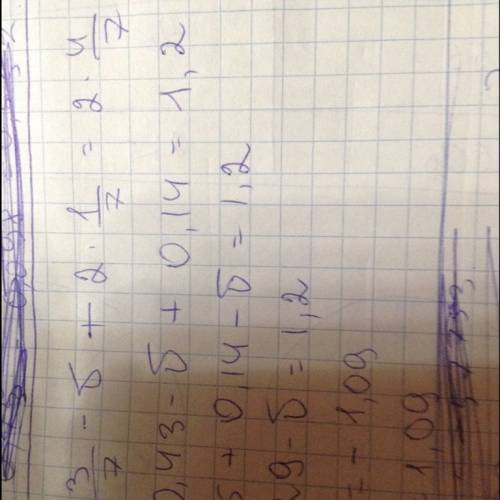 3/7 - б + 2 · 1/7 = 2 · 4/7
0,43 - б + 0,14 = 1,2
б + 0,14 - б = 1,2
9 - б = 1,2
= - 1,09
1,09